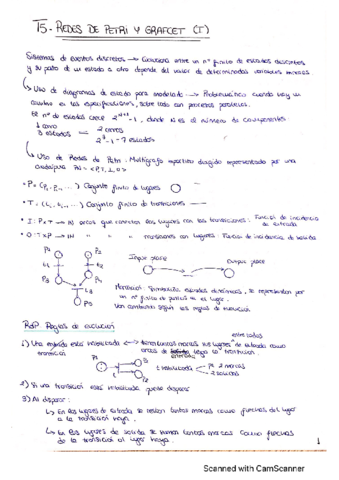 T5 - REDES DE PETRI Y GRAFCET (I)
Sistemas de eventos discretos → Conmuta entre un nº finito de estados discretos
y su paso de un estado a otro depende del valor de determinadas variables
↳ Uso de diagramas de estado para modelado → Problemático cuando hay
en las especificaciones, sobre todo con procesos paralelos.
El nº de estados crece 2^N - 1, donde N es el número de componentes.
1 carro
3 estados
2 carros
7 estados
↳ Uso de Redes de Petri: Multigrafo bipartito dirigido representado por una
PN = <P, T, I, O>
• P = (P1, P2, ...) Conjunto finito de lugares
• T = (t1, t2, ...) Conjunto finito de transiciones
• I: PxT → IN arcos que conectan los lugares con las transiciones. Función de incidencia
de entrada
• O: TxP → IN " transiciones con lugares. Función de incidencia de salida
P1
P2
t1
t2
P3
P4
t3
P5
Input place
Output place
Marcado: estados dinámicos, se representan por
un nº finito de puntos en el lugar.
Van cambiando según las reglas de evolución
RdP Reglas de evolución
1) Una está sensibilizada ↔ tienen tantas marcas sus lugares de entrada como
transición
arcos de
2 marcas
2) Si una transición está sensibilizada puede disparar
3) Al disparar:
↳ En los lugares de entrada se restan tantas marcas como flechas del lugar
a la transición haya.
↳ En los lugares de salida se suman tantas marcas como flechas
de la transición al lugar haya.
1
Scanned with CamScanner